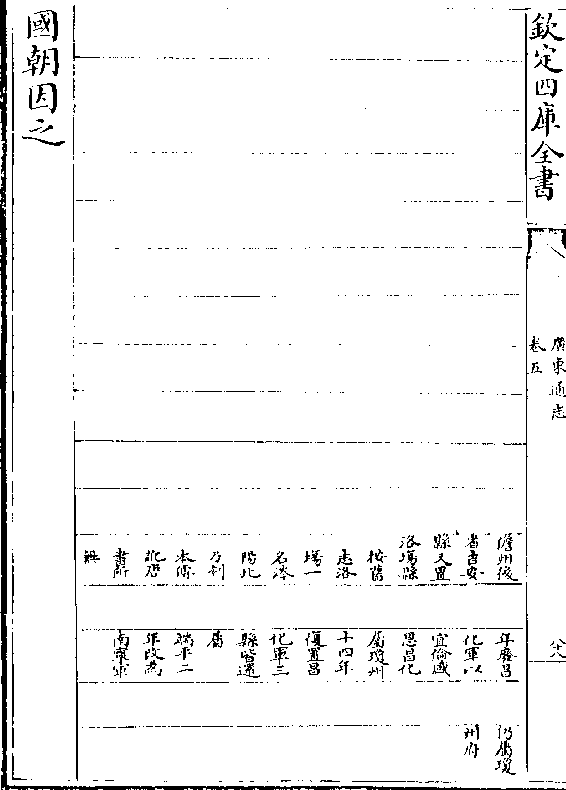 欽定四庫全書
廣東通志
卷五
儋州後
省吉安
縣又置
洛場縣
按舊
志洛
場一
名洛
陽此
乃刋
本傳
訛歴
書所
無
年廢昌
化軍以
宜倫感
恩昌化
屬瓊州
十四年
復置昌
化軍三
縣皆還
屬
端平二
年改為
南寧軍
仍屬瓊
州府
國朝因之